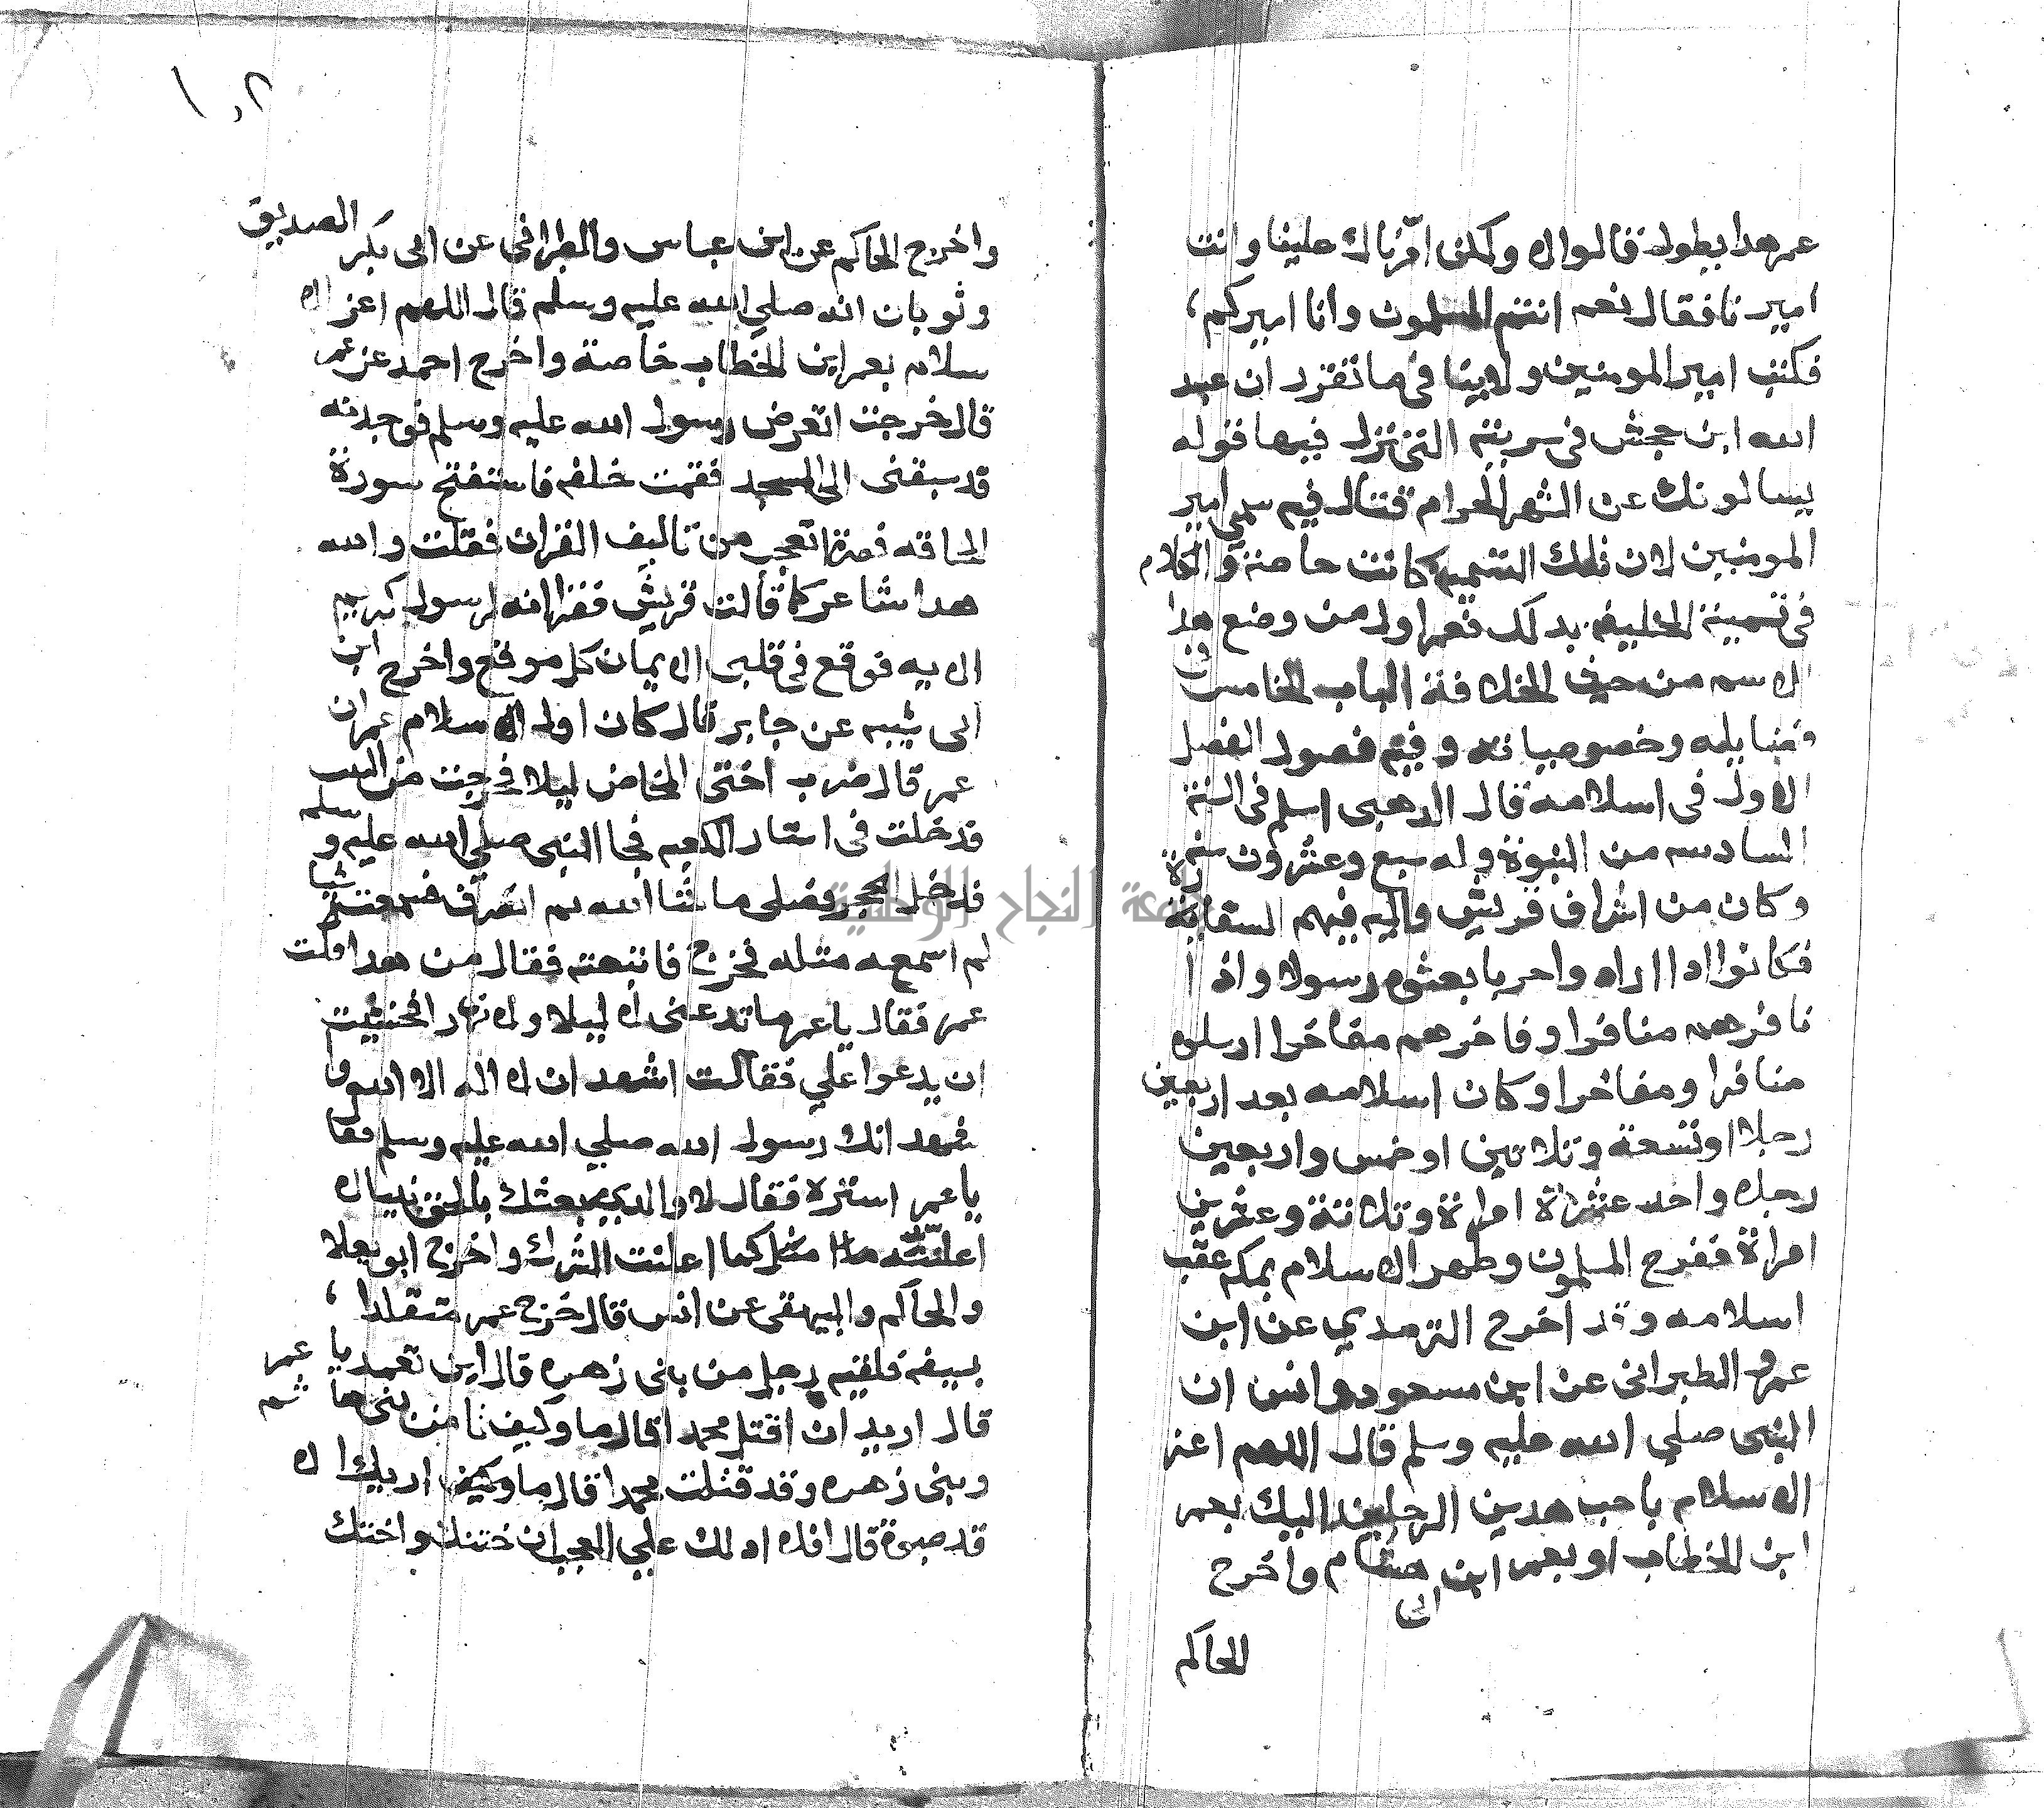 عمر هدا يطول قالوا لا ولكن امرناك علينا وانت
اميرنا فقال نعم انتم المسلمون وانا اميركم
فكتب امير المومنين ولا ينافي ما تقرر ان عبد
الله ابن جحش في سريته التي نزل فيها قوله
يسالونك عن الشهر الحرام قتال فيه سمي امير
المومنين لان تلك التسميه كانت خاصة والكلام
في تسمية الخليفه بدلك فعمر اول من وضع هدا
الاسم من حيث الخلافة الباب الخامس في
فضايله وخصوصياته وفيه فصول الفصل
الاول في اسلامه قال الدهبي اسلم في السنة
السادسه من النبوة وله سبع وعشرون سنه
وكان من اشراف قريش واليه فيهم السفارة
فكانوا ادا اراه واحربا بعثوه رسولا واذا
نافرهم منافرا وفاخرهم مفاخرا ارسلوه
منافرا ومفاخرا وكان اسلامه بعد اربعين
رجلا او تسعة وتلاتين او خمس واربعين
رجلا واحد عشراة امراة وتلاتة وعشرين
امراة ففرح المسلمون وظهر الاسلام بمكه عقب
اسلامه وقد اخرج الترمدي عن ابن
عمر والطبراني عن ابن مسعود وانس ان
النبي صلي الله عليه وسلم قال اللهم اعز
الاسلام باحب هدين الرجلين اليك بعمر
ابن الخطاب او بعمر ابن هشام واخرج
ابي
الحاكم
١٠٢
واخرج الحاكم عن ابن عباس والطبراني عن ابي بكر الصديق
وثوبان انه صلي الله عليه وسلم قال اللهم اعز الا
سلام بعمر ابن الخطاب خاصة واخرج احمد عن عمر
قال خرجت اتعرض رسول الله عليه وسلم فوجدته
قد سبقني الى المسجد فقمت خلفه فاستفتح سورة
الحاقه فصرت اتعجب من تاليف القران فقلت والله
هدا شاعر كما قالت قريش فقرا انه لرسول كريم
الايه فوقع في قلبي الايمان كل موقع واخرج ابن
ابي شيبه عن جابر قال كان اول الاسلام عمر ان
عمر قال ضرب اختي المخاض ليلا فخرجت من البيت
فدخلت في استار الكعبه فجا النبي صلي الله عليه وسلم
فدخل الحجر وصلى ما شا الله ثم انصرف فسمعت شيا
لم اسمع مثله فخرج فاتبعته فقال من هدا قلت
عمر فقال يا عمر ما تدعني لا ليلا ولا نهارا فخشيت
ان يدعوا علي فقالت اشهد ان لا اله الا الله و
شهد انك رسول الله صلي الله عليه وسلم فقا
يا عمر استره فقال لا والدي بعثك بالحق نبيا لا
اعلنته كما اعلنت الشرك واخرج ابو يعلا
والحاكم والبيهقي عن انس قال خرج عمر متقلدا
بسيفه فلقيه رجل من بني زهره قال اين تعمد يا عمر
قال اريد ان اقتل محمد اقال ما وكيف تامن بني هاشم
وبني زهره وقد قتلت محمدا قال ما اريك الا
قد صبوة قال افلا ادلك علي العجب ان ختنك واختك
جامعة النجاح الوطنية